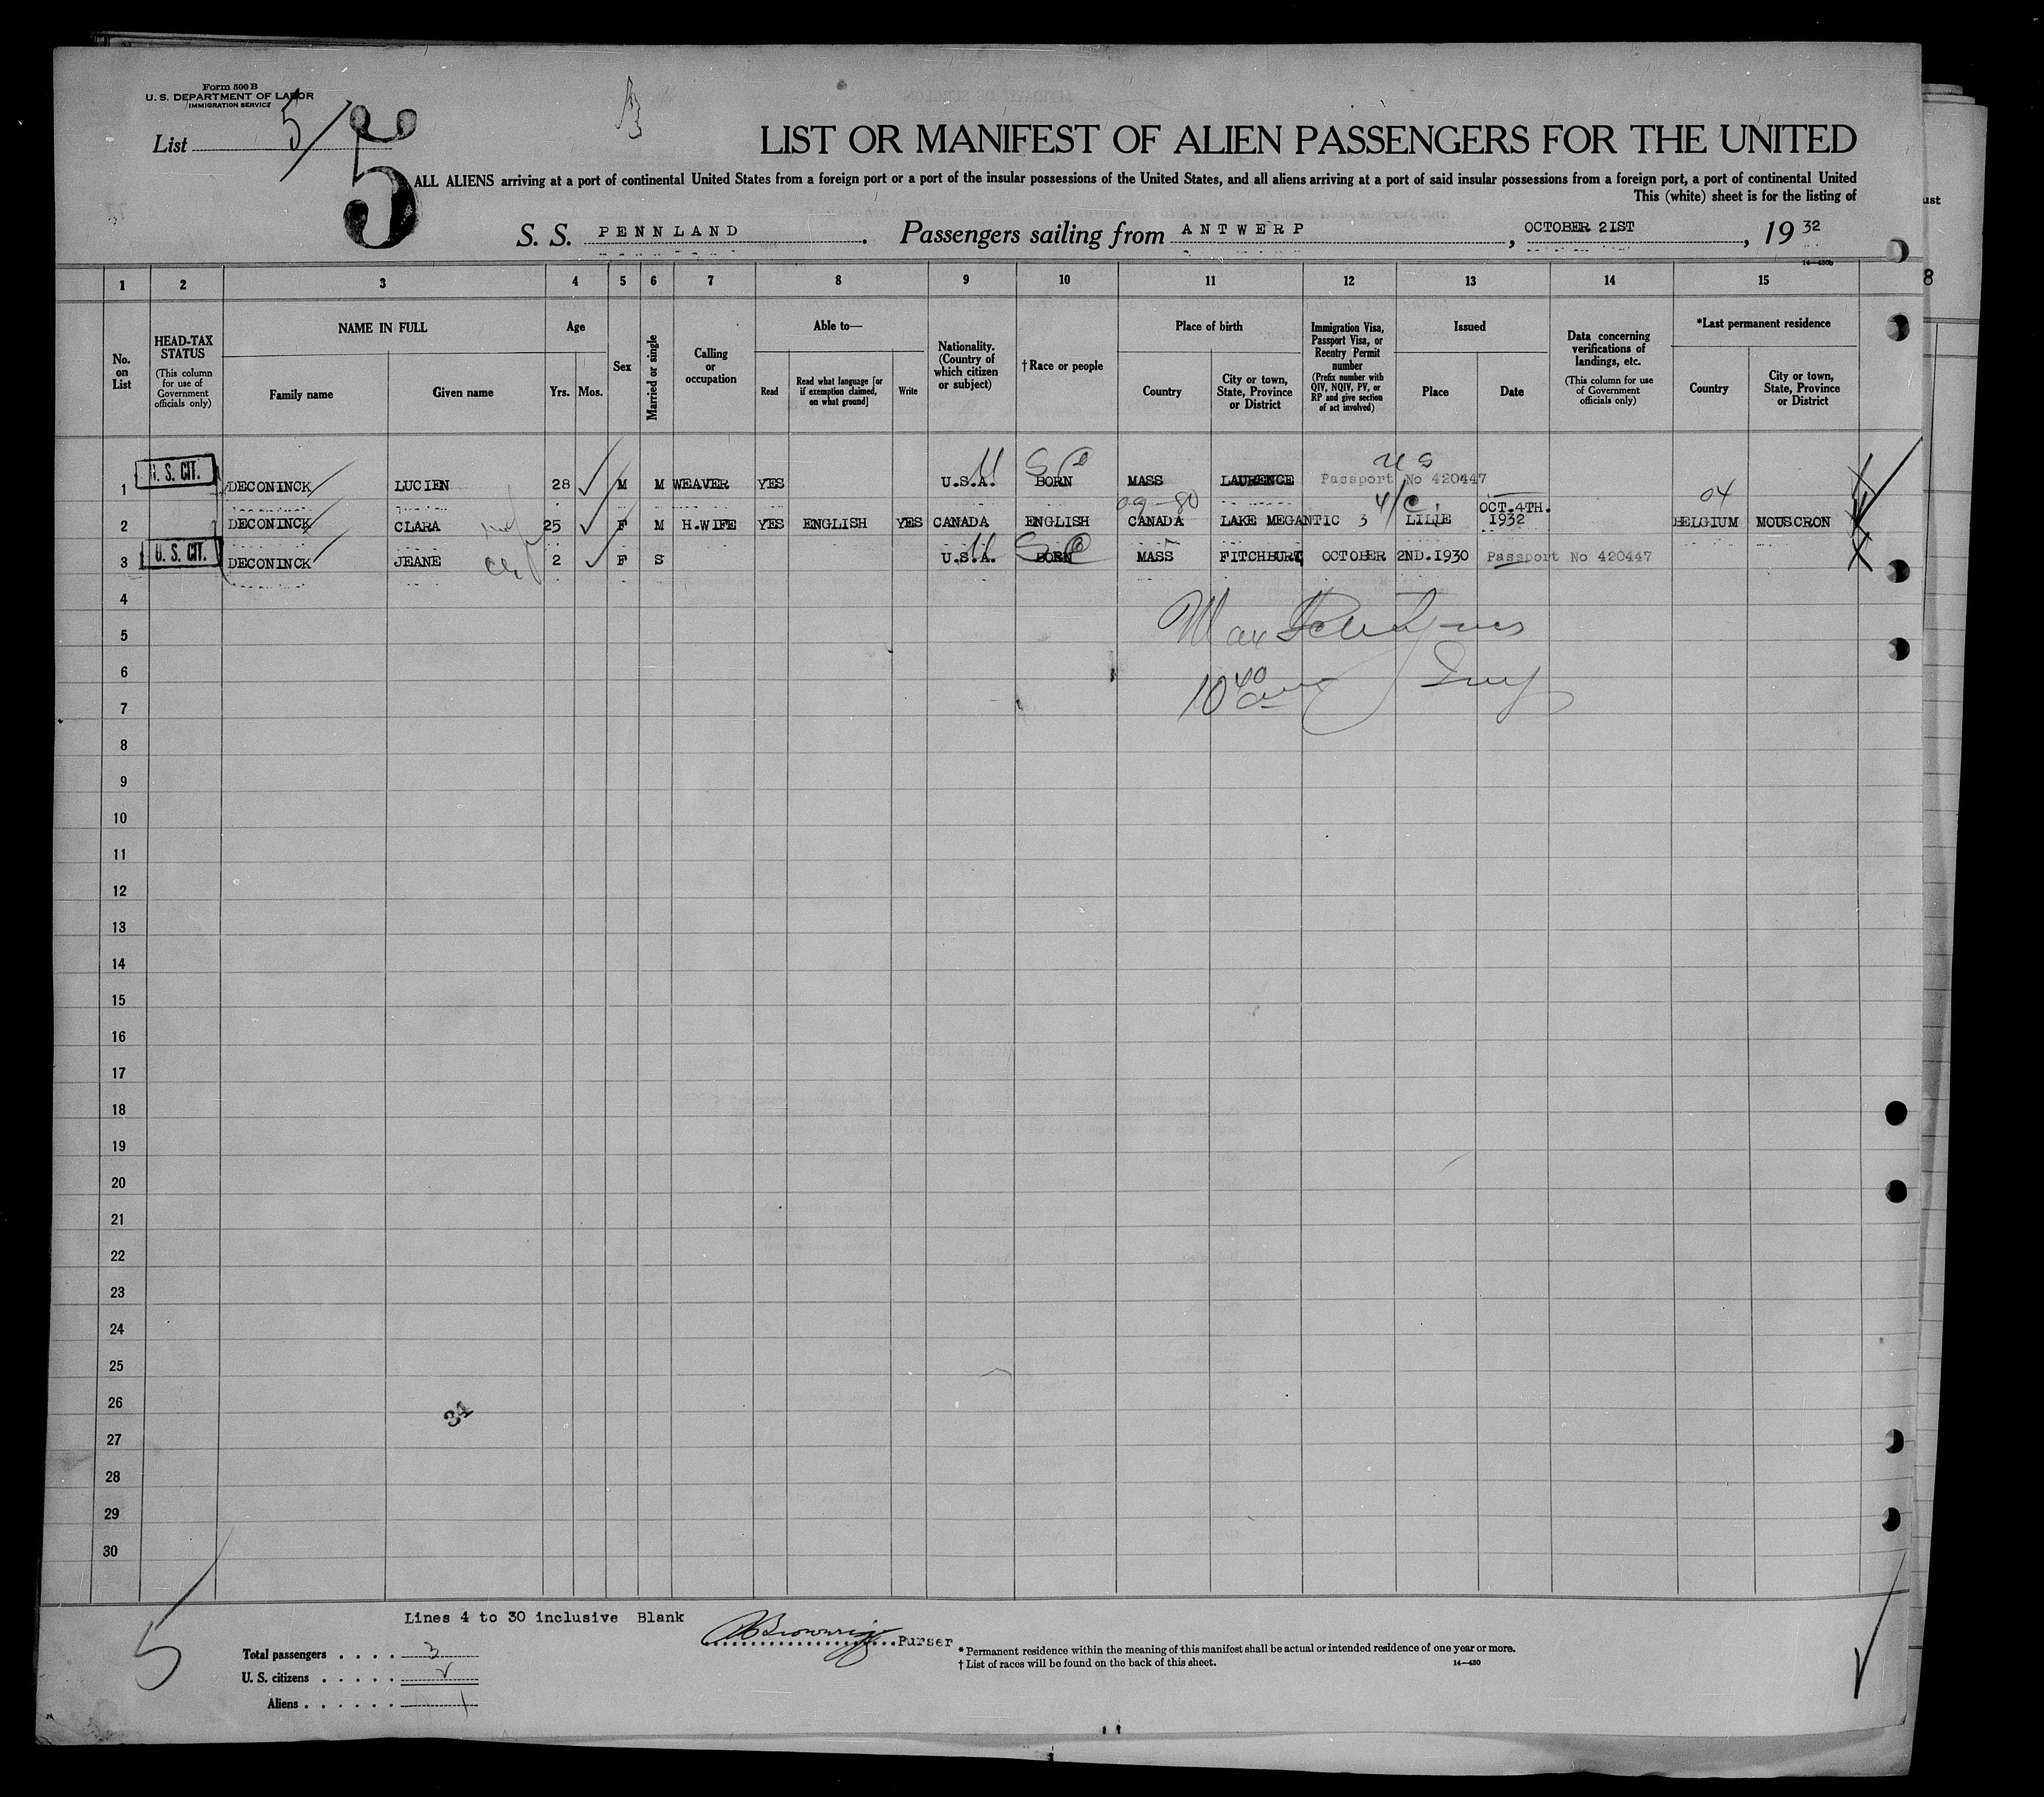 Form 500 B
U. S. DEPARTMENT OF LABOR
IMMIGRATION SERVICE
List 5
5
LIST OR MANIFEST OF ALIEN PASSENGERS FOR THE UNITED
ALL ALIENS arriving at a port of continental United States from a foreign port or a port of the insular possessions of the United States, and all aliens arriving at a port of said insular possessions from a foreign port, a port of continental United
This (white) sheet is for the listing of
S. S. PENNLAND. Passengers sailing from ANTWERP, OCTOBER 21ST, 19 32
14—430b
1 2 3 4 5 6 7 8 9 10 11 12 13 14 15
No. on List
HEAD-TAX STATUS (This column for use of Government officials only)
NAME IN FULL
Family name Given name
Age
Yrs. Mos.
Sex
Married or single
Calling or occupation
Able to—
Read Read what language [or if exemption claimed, on what ground] Write
Nationality. (Country of which citizen or subject)
†Race or people
Place of birth
Country City or town, State, Province or District
Immigration Visa, Passport Visa, or Reentry Permit number (Prefix number with QIV, NQIV, PV, or RP and give section of act involved)
Issued
Place Date
Data concerning verifications of landings, etc. (This column for use of Government officials only)
*Last permanent residence
Country City or town, State, Province or District
U S
1 U. S. CIT. DECONINCK LUCIEN 28 M M WEAVER YES U.S.A. BORN MASS LAURENCE Passport No 420447
09-80 4/c 04
2 DECONINCK CLARA 25 F M H.WIFE YES ENGLISH YES CANADA ENGLISH CANADA LAKE MEGANTIC 3 LILIE OCT.4TH. 1932 BELGIUM MOUSCRON
3 U. S. CIT. DECONINCK JEANE 2 F S U.S.A. BORN MASS FITCHBURG OCTOBER 2ND.1930 Passport No 420447
4
5
6
10 40
7
8
9
10
11
12
13
14
15
16
17
18
19
20
21
22
23
24
25
26
34
27
28
29
30
Lines 4 to 30 inclusive Blank
5
Purser
Total passengers . . . . 3
U. S. citizens . . . . . 2
Aliens . . . . . . 1
* Permanent residence within the meaning of this manifest shall be actual or intended residence of one year or more.
† List of races will be found on the back of this sheet.
14—430